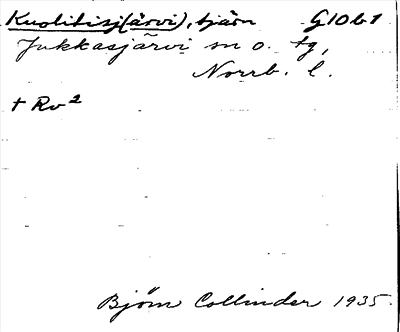 Kuolitisj(ärvi), tjärn G10b1
Jukkasjärvi sn o. tg,
Norrb. l.
+ Rv²
Björn Collinder 1935